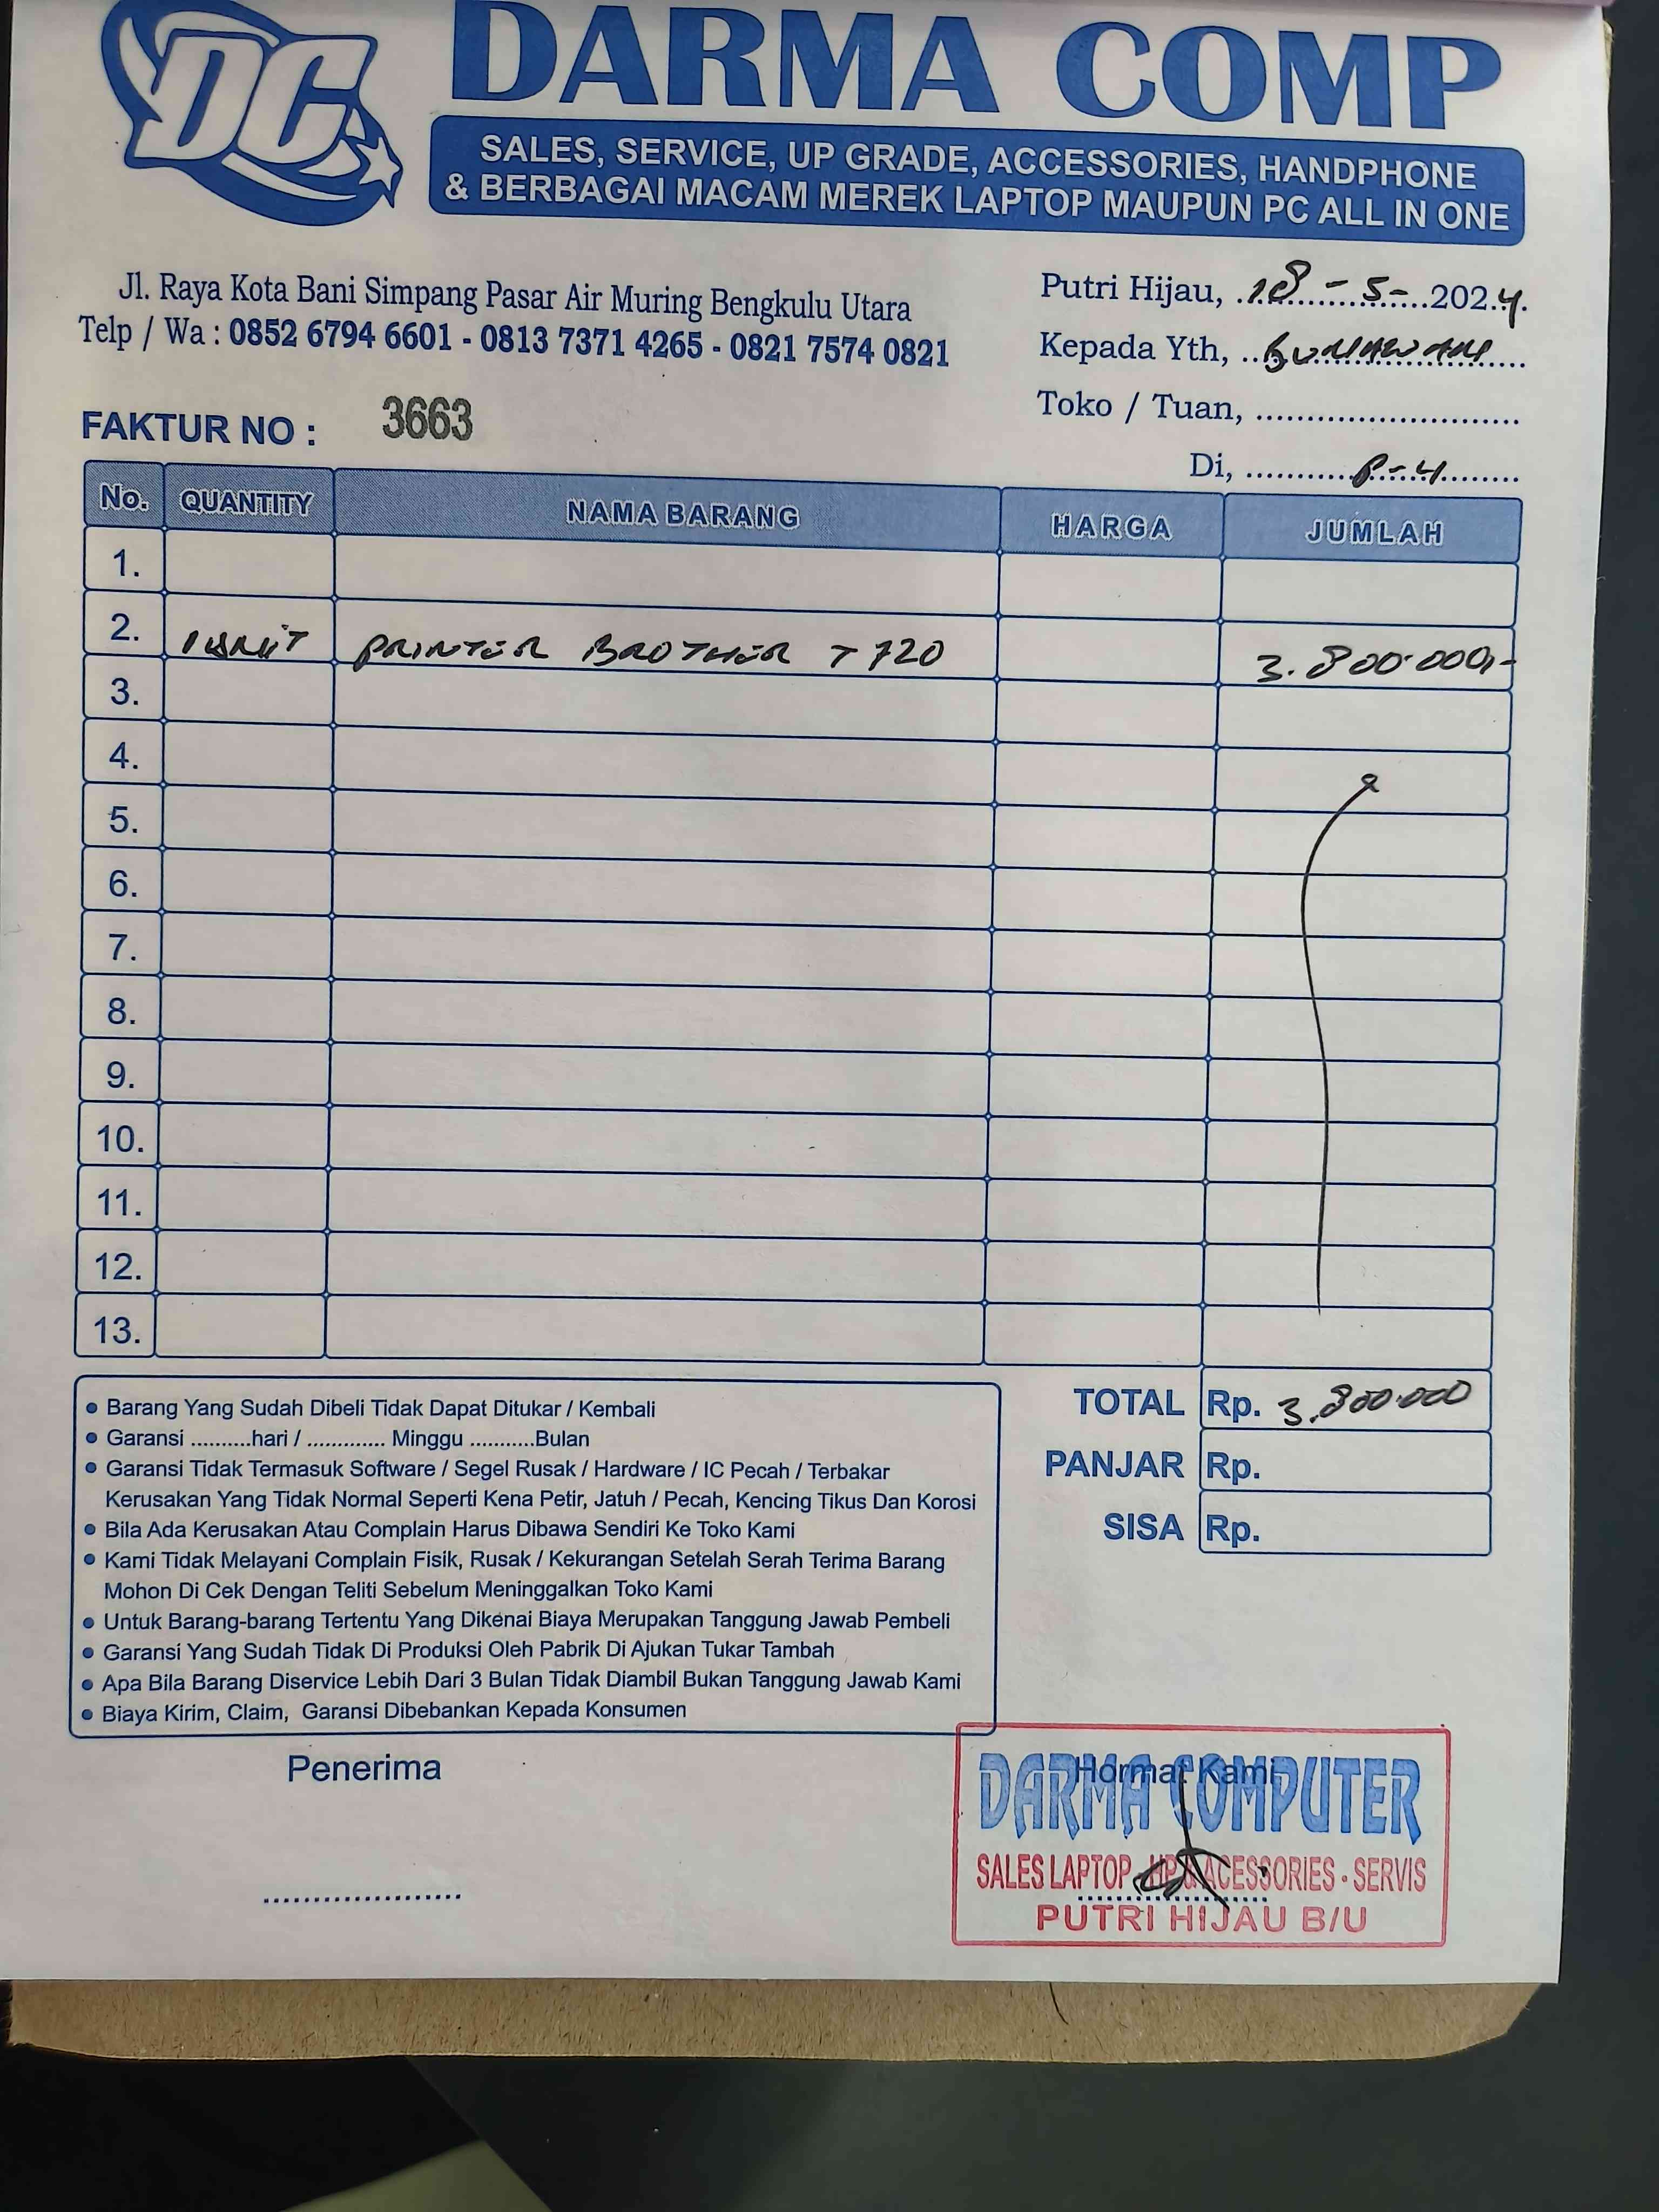 DC
DARMA COMP
SALES, SERVICE, UP GRADE, ACCESSORIES, HANDPHONE
& BERBAGAI MACAM MEREK LAPTOP MAUPUN PC ALL IN ONE
Jl. Raya Kota Bani Simpang Pasar Air Muring Bengkulu Utara
Telp / Wa : 0852 6794 6601 - 0813 7371 4265 - 0821 7574 0821
Putri Hijau, 18 - 5 - 2024.
Kepada Yth, ..Gunawan......
Toko / Tuan, ............................
Di, ...........P-4.........
FAKTUR NO : 3663
No. QUANTITY NAMA BARANG HARGA JUMLAH
1.
2. 1 UNIT PRINTER BROTHER T 720 3.800.000,-
3.
4.
5.
6.
7.
8.
9.
10.
11.
12.
13.
TOTAL Rp. 3.800.000
PANJAR Rp.
SISA Rp.
• Barang Yang Sudah Dibeli Tidak Dapat Ditukar / Kembali
• Garansi ..........hari / ............. Minggu ...........Bulan
• Garansi Tidak Termasuk Software / Segel Rusak / Hardware / IC Pecah / Terbakar
Kerusakan Yang Tidak Normal Seperti Kena Petir, Jatuh / Pecah, Kencing Tikus Dan Korosi
• Bila Ada Kerusakan Atau Complain Harus Dibawa Sendiri Ke Toko Kami
• Kami Tidak Melayani Complain Fisik, Rusak / Kekurangan Setelah Serah Terima Barang
Mohon Di Cek Dengan Teliti Sebelum Meninggalkan Toko Kami
• Untuk Barang-barang Tertentu Yang Dikenai Biaya Merupakan Tanggung Jawab Pembeli
• Garansi Yang Sudah Tidak Di Produksi Oleh Pabrik Di Ajukan Tukar Tambah
• Apa Bila Barang Diservice Lebih Dari 3 Bulan Tidak Diambil Bukan Tanggung Jawab Kami
• Biaya Kirim, Claim, Garansi Dibebankan Kepada Konsumen
Penerima
Hormat Kami
DARMA COMPUTER
SALES LAPTOP - HP & ACESSORIES - SERVIS
PUTRI HIJAU B/U